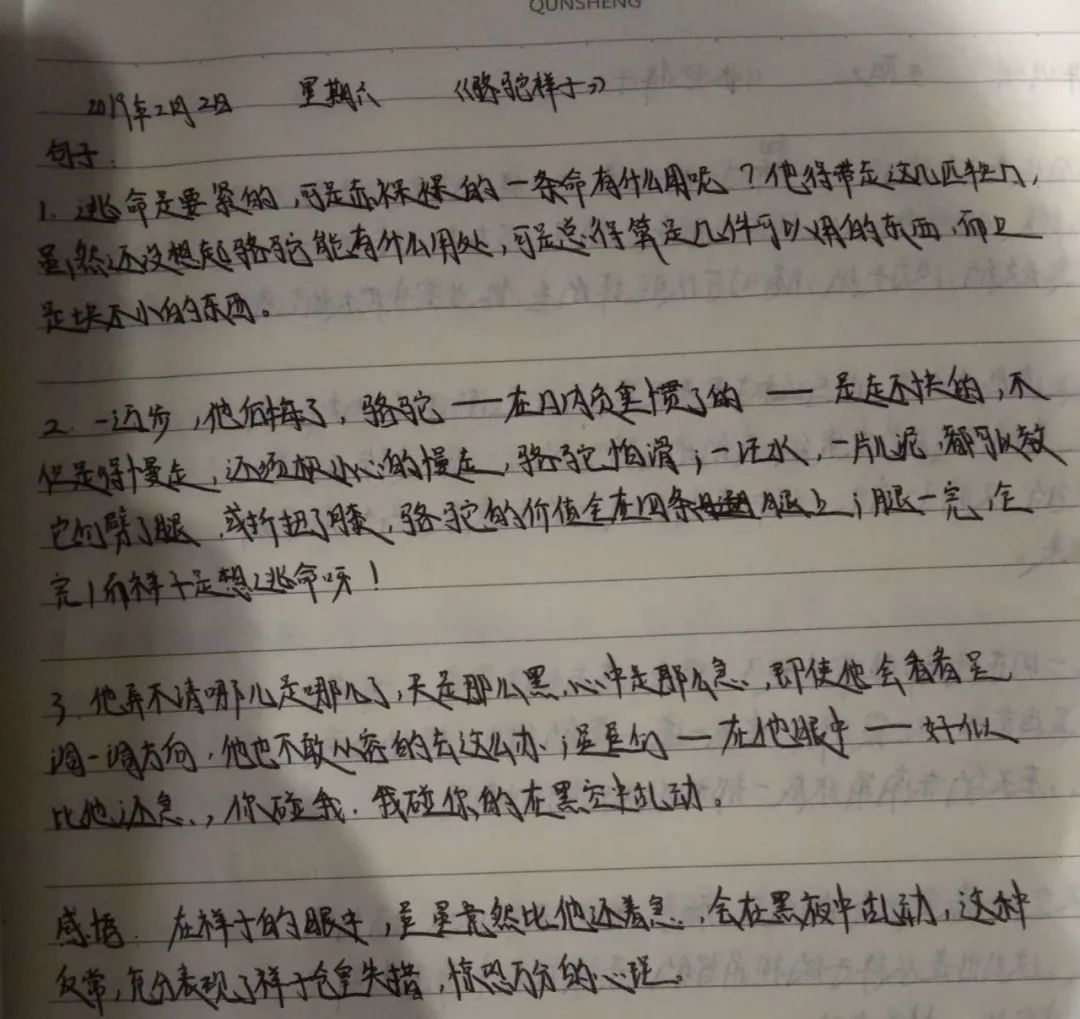 QUNSHENG
2019年2月2日 星期六 《骆驼祥子》
句子:
1. 逃命是要紧的,可是赤裸裸的一条命有什么用呢?他得带走这几匹牲口,
虽然还没想起骆驼能有什么用处,可是总得算是几件可以用的东西,而且
是块不小的东西。
2. 一边步,他后悔了,骆驼——在口内负重惯了的——是走不快的,不
但是得慢走,还须极小心的慢走,骆驼怕滑;一汪水,一片儿泥,都可以教
它们劈了腿,或折扭了膝,骆驼的价值全在四条腿上;腿一完,全
完!而祥子是想逃命呀!
3. 他弄不清哪儿是哪儿了,天是那么黑,心中是那么急,即使他会看看星
调一调方向,他也不敢从容的去这么办;星星们——在他眼中——好似
比他还急,你碰我,我碰你的在黑空中乱动。
感悟:在祥子的眼中,星星竟然比他还着急,会在黑夜中乱动,这种
反常,充分表现了祥子仓皇失措,惊恐万分的心理。